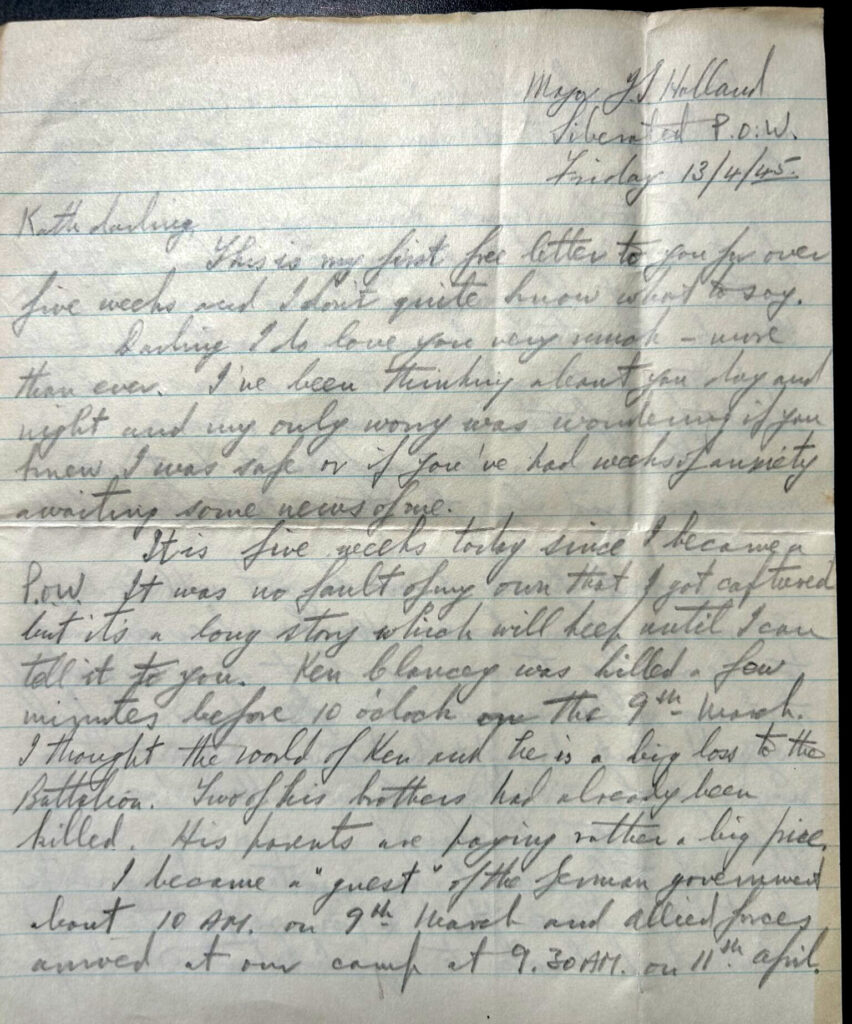 Major J.S Holland
Liberated P.O.W.
Friday 13/4/45.
Kath darling,
This is my first free letter to you for over
five weeks and I don't quite know what to say.
Darling I do love you very much – more
than ever. I've been thinking about you day and
night and my only worry was wondering if you
knew I was safe or if you've had weeks of anxiety
awaiting some news of me.
It is five weeks today since I became a
P.O.W. It was no fault of my own that I got captured
but it's a long story which will keep until I can
tell it to you. Ken Clancey was killed a few
minutes before 10 o'clock on the 9th March.
I thought the world of Ken and he is a big loss to the
Battalion. Two of his brothers had already been
killed. His parents are paying rather a big price.
I became a "guest" of the German government
about 10 AM. on 9th March and allied forces
arrived at our camp at 9.30 AM. on 11th April.